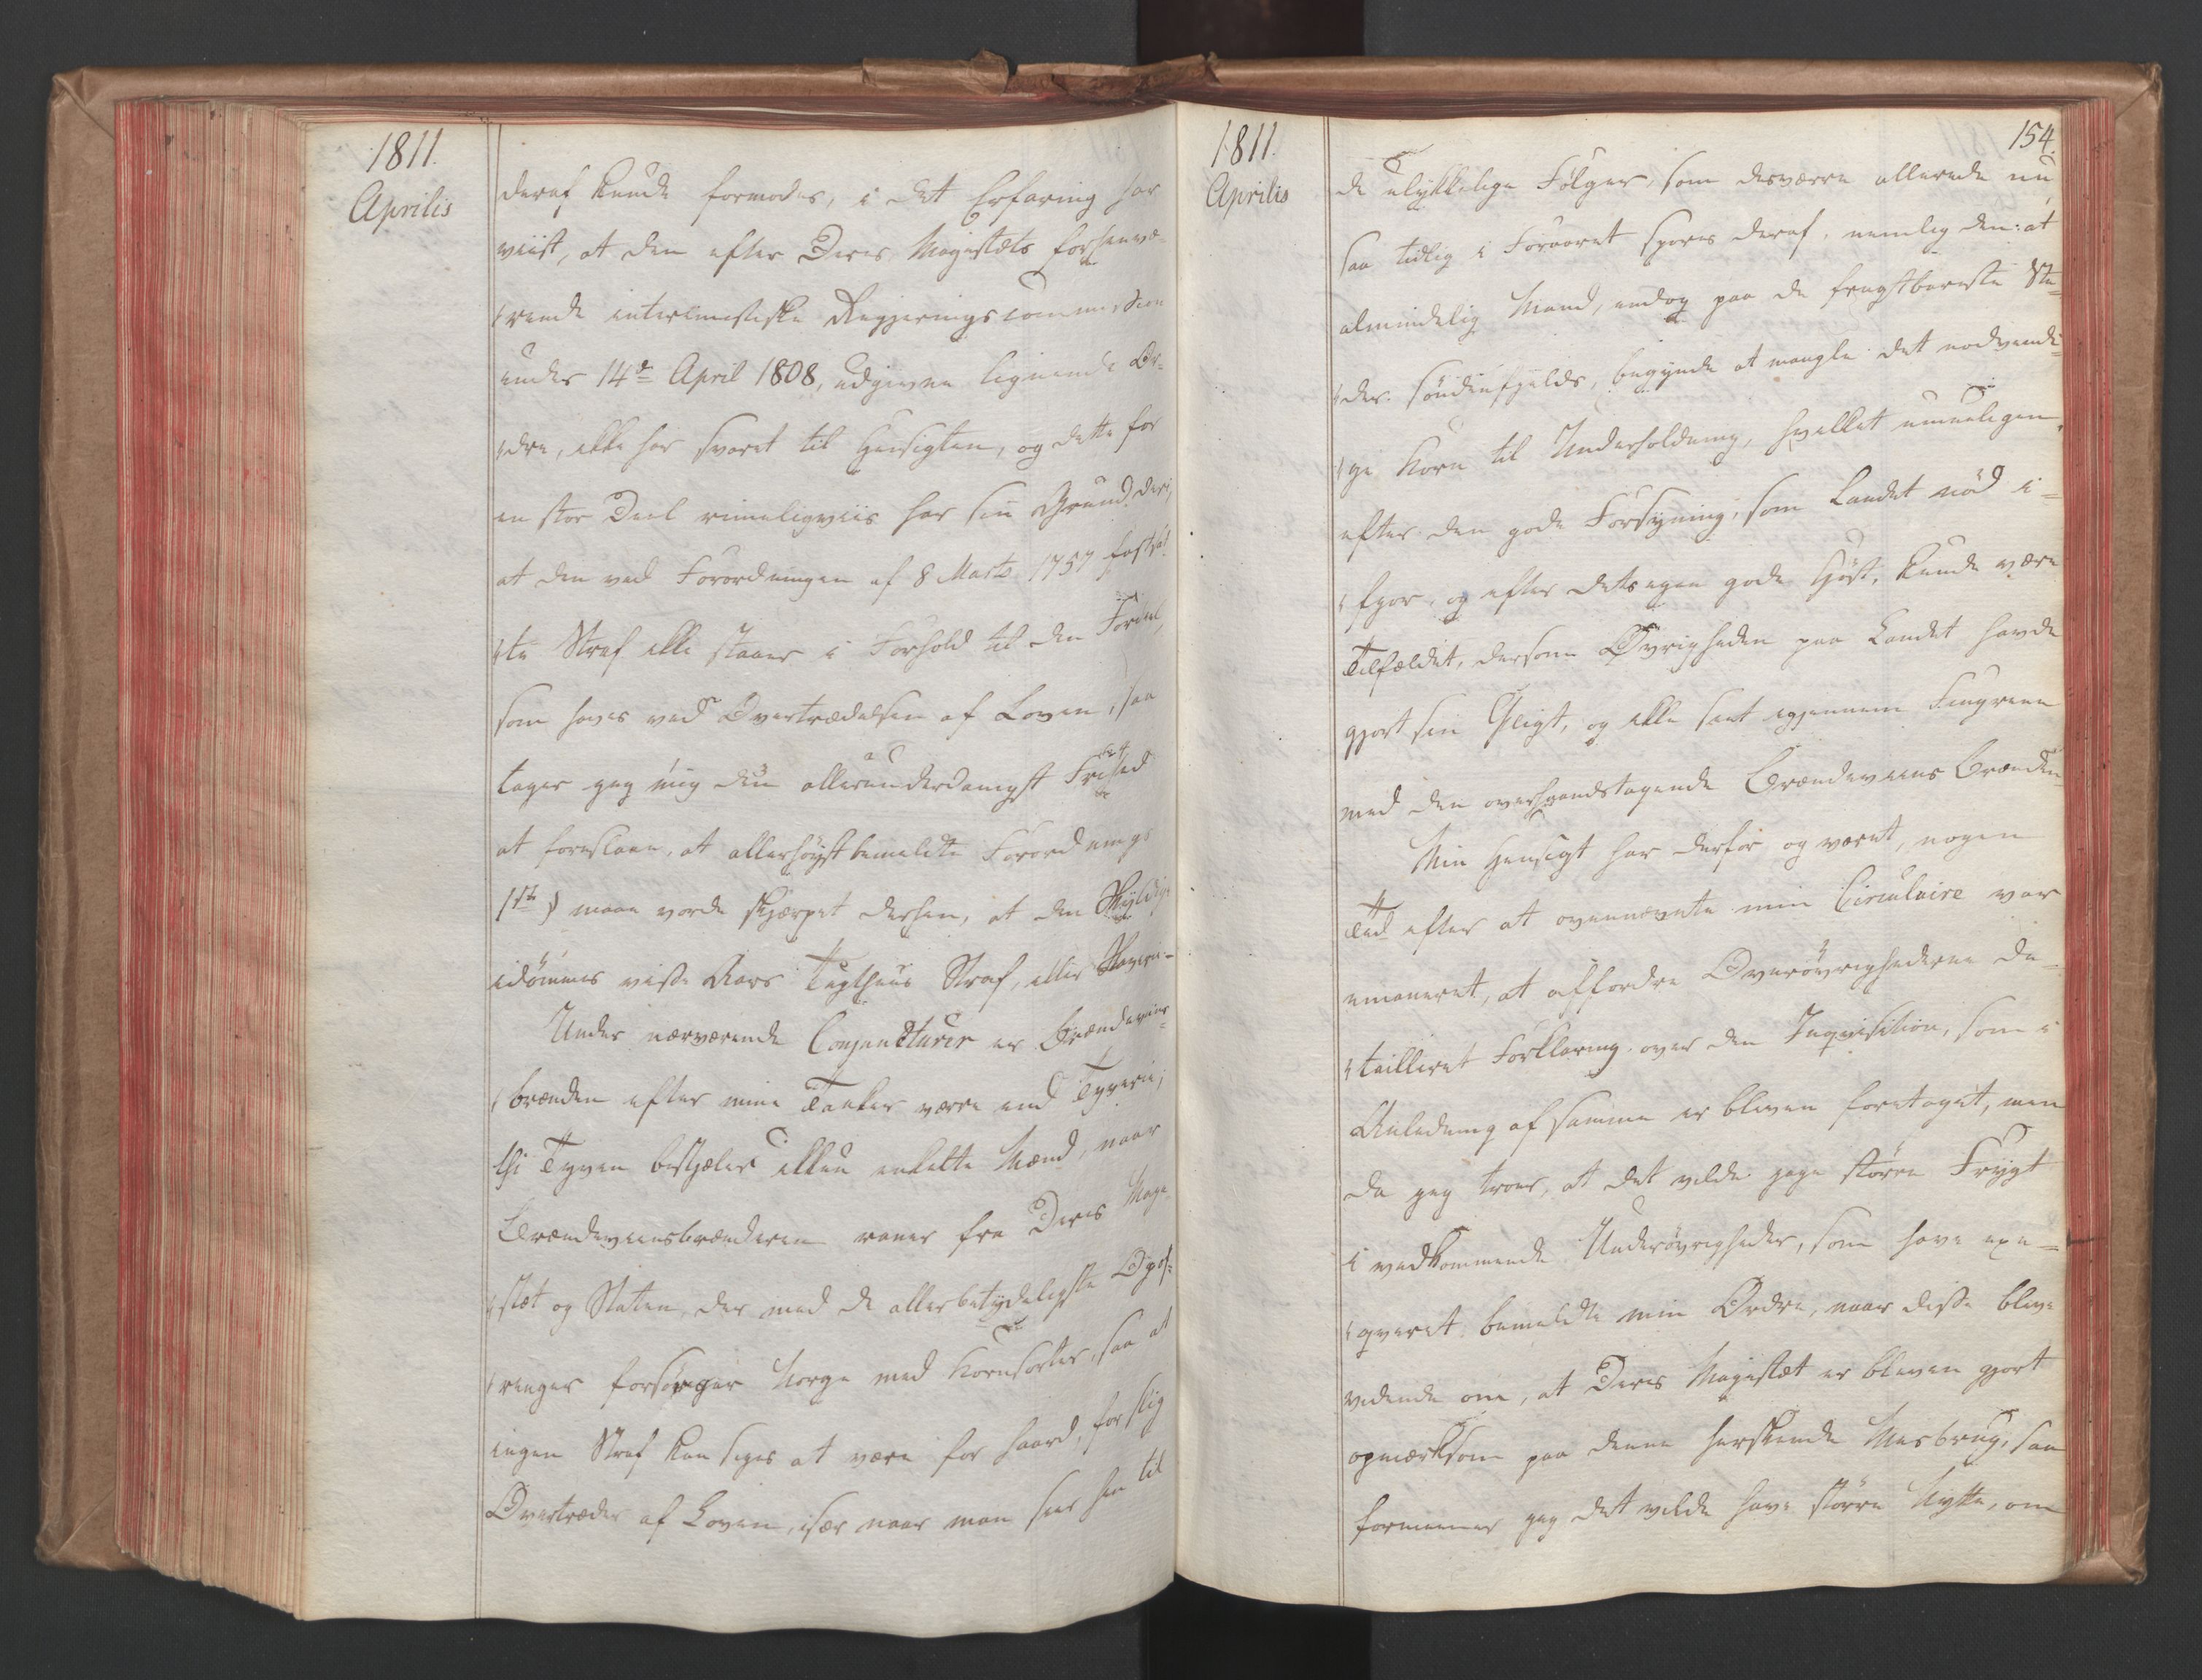 1811.
Aprilis
deraf kunde formodes, i det Erfaring har
viist, at den efter Deres Majestæts forhenvæ-
rende interimistiske Regjeringscommission
under 14de April 1808, udgivne lignende Or-
dre, ikke har svaret til Hensigten, og dette for
en stor Deel rimeligviis har sin Grund deri,
at den ved Forordningen af 8 Marts 1757 fastsat-
te Straf ikke staaer i Forhold til den Fordeel,
som haves ved Overtrædelsen af Loven, saa
tager jeg mig den allerunderdanigst Frihed
at foreslaae, at allerhøystbemeldte Forordnings
1ste § maae vorde skjærpet derhen, at den Skyldige
idømmes visse Aars Tugthuus Straf, eller Slaverie-
Under nærværende Conjuncturer er Brændeviins
brænden efter mine Tanker værre end Tyverie;
thi Tyven bestjæler ikkun enkelte Mænd, naar
Brændeviinsbrænderen raner fra Deres Maje-
stæt og Staten, der med de allerbetydeligste Opof-
ringer forsørger Norge med Kornsorter, saa at
ingen Straf kan siges at være for haard, for slig
Overtræder af Loven, især naar man seer hen til
1811.
Aprilis
154.
de ulykkelige Følger, som desværre allerede nu
saa tidlig i Foraaret spores deraf, nemlig den: at
almindelig Mand, endog paa de frugtbareste Ste-
der søndenfjelds, begynde at mangle det nødvendi-
ge Korn til Underholdning, hvilket umueligen,
efter den gode Forsyning, som Landet nød i-
fjor, og efter dets egen gode Høst, kunde være
Tilfældet, dersom Øvrigheden paa Landet havde
gjort sin Pligt, og ikke seet igjennem Fingrene
med den overhaandtagende Brændeviins Brænden
Min Hensigt har derfor og været, nogen
Tid efter at ovennævnte min Circulaire var
emaneret, at affordre Overøvrighederne de-
tailleret Forklaring over den Inqvisition, som i
Anledning af samme er bleven foretaget, men
da jeg troer, at det vilde jage større Frygt
i vedkommende Underøvrigheder, som have exe-
qveret bemeldte min Ordre, naar disse bleve
vidende om, at Deres Majestæt er bleven gjort
opmærksom paa denne herskende Misbrug, saa
formeener jeg det vilde have større Nytte, om